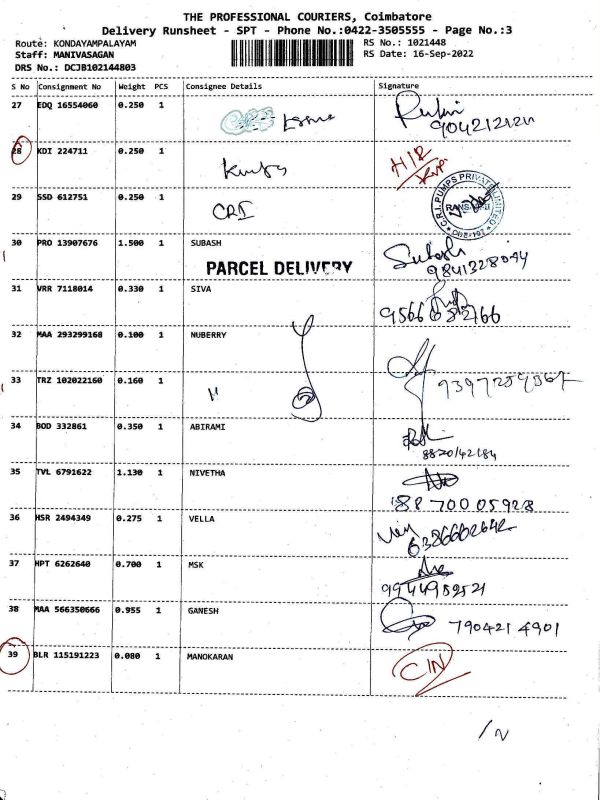 THE PROFESSIONAL COURIERS, Coimbatore
Delivery Runsheet - SPT - Phone No.:0422-3505555 - Page No.:3
Route: KONDAYAMPALAYAM
RS No.: 1021448
Staff: MANIVASAGAN
RS Date: 16-Sep-2022
DRS No.: DCJB102144803
S No Consignment No Weight PCS Consignee Details Signature
27 EDQ 16554060 0.250 1
28 KDI 224711 0.250 1
29 SSD 612751 0.250 1 CRI
C.R.I. PUMPS PRIVATE LIMITED
30 PRO 13907676 1.500 1 SUBASH
PARCEL DELIVERY
9841328094
31 VRR 7118014 0.330 1 SIVA
32 MAA 293299168 0.100 1 NUBERRY
33 TRZ 102022160 0.160 1 "
34 BOD 332861 0.350 1 ABIRAMI
35 TVL 6791622 1.130 1 NIVETHA
8870005928
36 HSR 2494349 0.275 1 VELLA
6386662642
37 HPT 6262640 0.700 1 MSK
9944952521
38 MAA 566350666 0.955 1 GANESH
7904214901
39 BLR 115191223 0.080 1 MANOKARAN
CIN